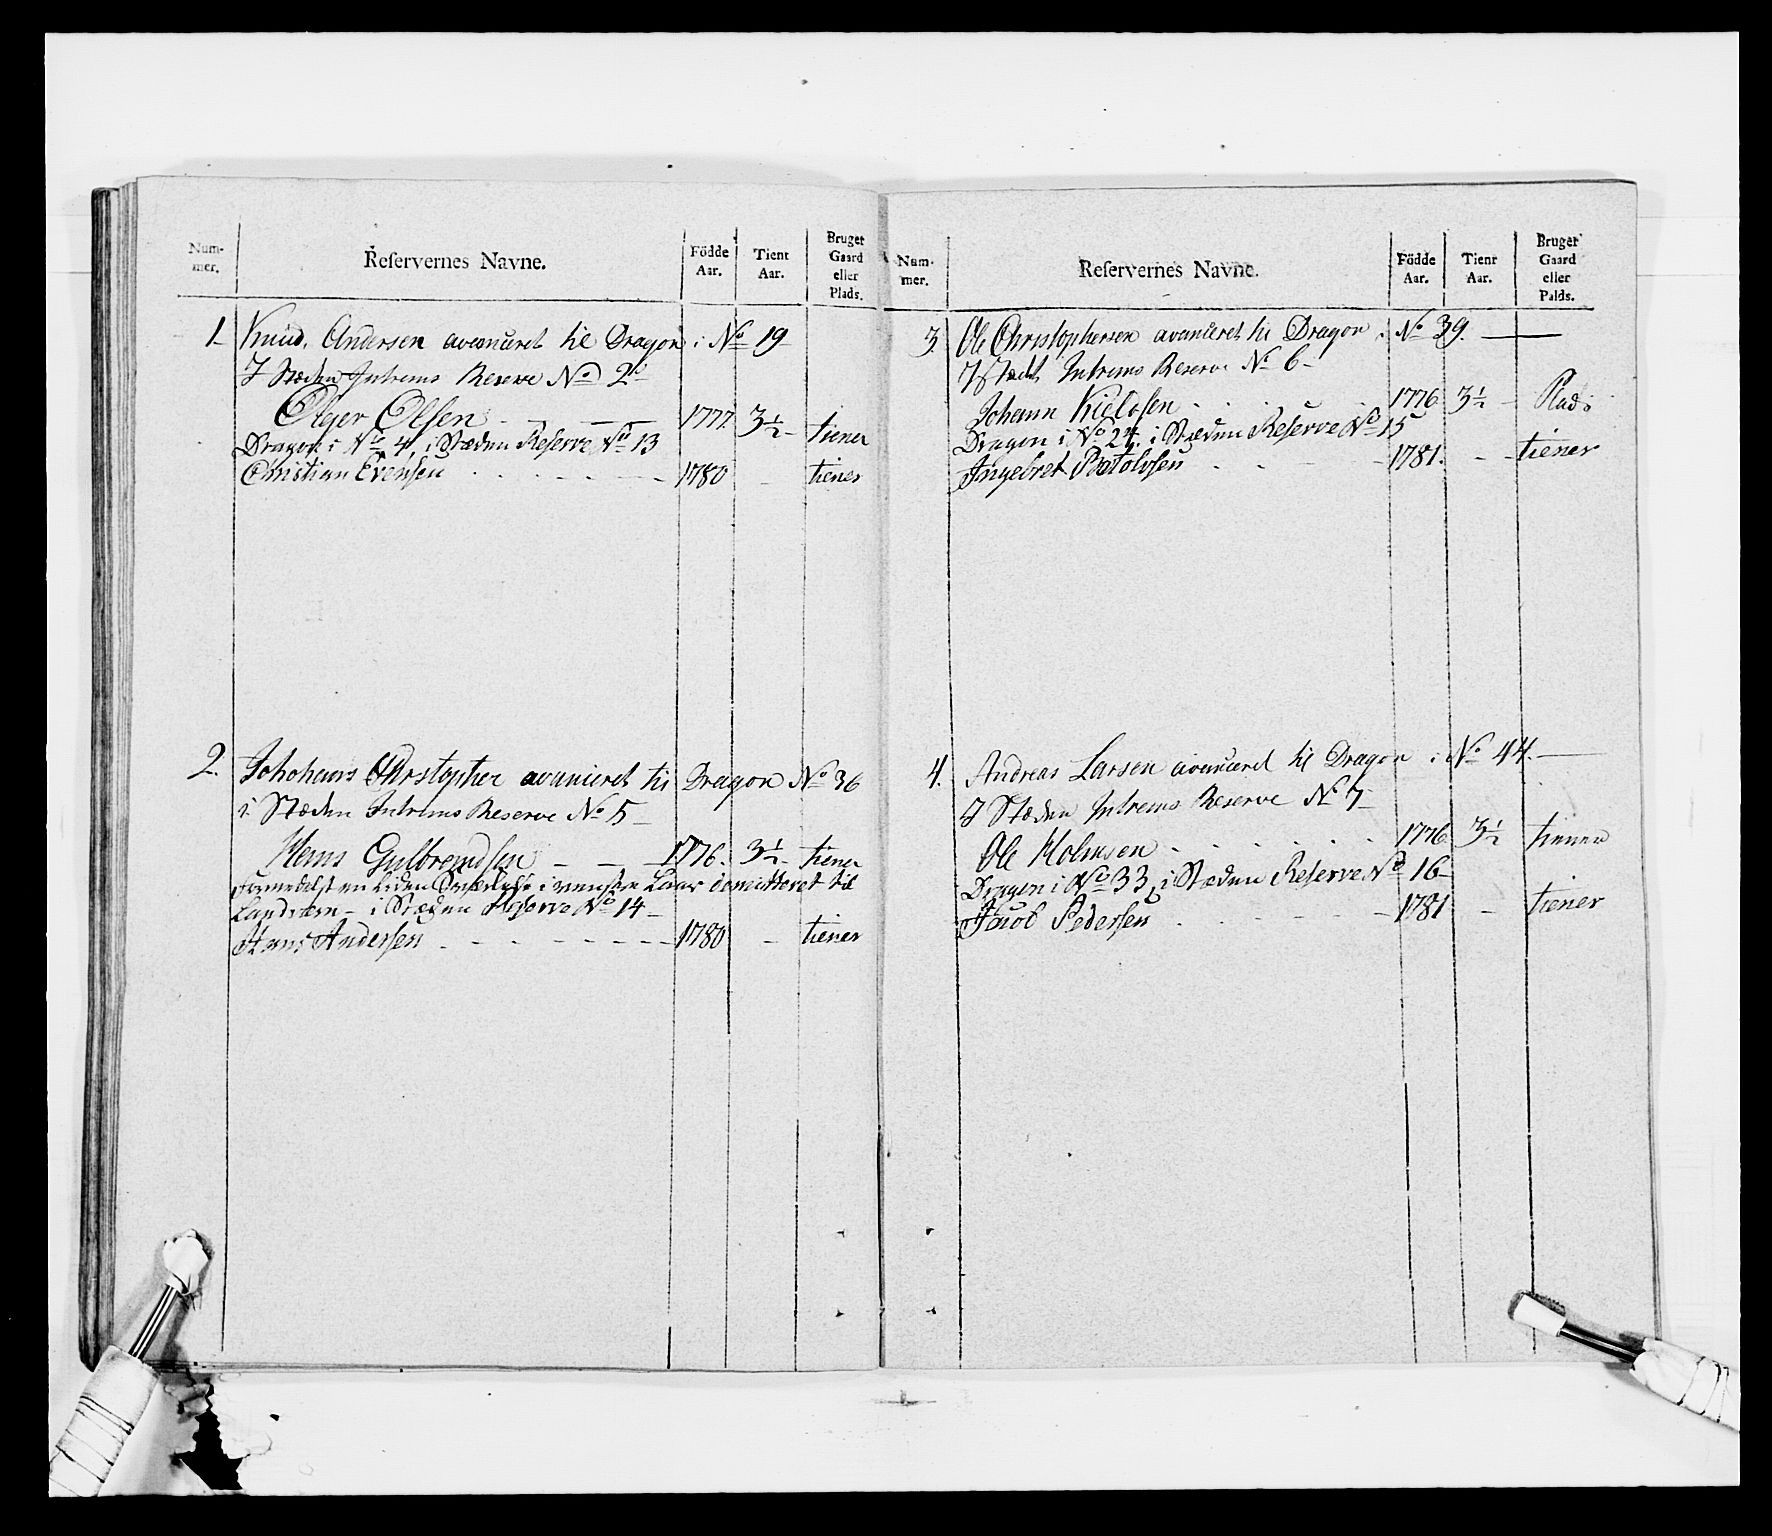 Num-
mer.
Reservernes Navne.
Födde
Aar.
Tient
Aar.
Bruget
Gaard
eller
Plads.
1. Knud Andersen avanceret til Dragon i No 19
I Stæden Intrems Reserve No 2
Olger Olsen 1777. 3½ tiener
Dragon i No 4, i Stæden Reserve No 13
Christian Evensen 1780 - tiener
2. Johohans Christopher avanceret til Dragon No 36
i Stæden Intrems Reserve No 5
Hans Gulbrendsen 1776. 3½ tiener
formedelst en liden i venstre Laar til
Landværn - i Stæden Reserve No 14
Hans Andersen 1780 - tiener
Num-
mer.
Reservernes Navne.
Födde
Aar.
Tient
Aar.
Bruger
Gaard
eller
Palds.
3. Ole Christophersen avanceret til Dragon i No 39.
I stædt Intrems Reserve No 6
Johann Kielosen 1776 3½ - Plads
Dragon i No 24. i Stæden Reserve No 15
Ingebret 1781. - tiener
4. Andreas Larsen avanceret til Dragon i No 44.
I Stæden Intrems Reserve No 7
Ole Holmsen 1776 3½ tiener
Dragon i No 33, i Stæden Reserve No 16
Jacob Pedersen 1781 - tiener